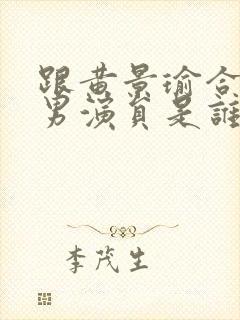 跟黄景瑜合
男演員是誰
李茂生